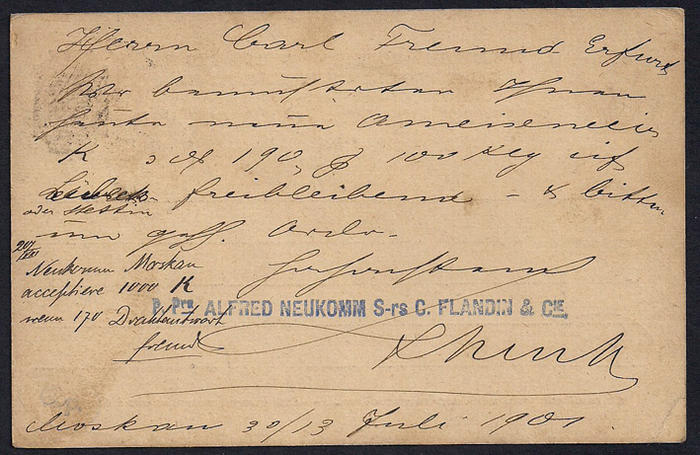 Herrn Carl Freund Erfurt
Wir bemusterten Ihnen
heute neue Ameiseneier
K M 190, p 100 Klg cif
Lübeck freibleibend - & bitten
oder Stettin
um gefl. Ordre.
Hochachtend
20/VII
Neukomm Moskau
acceptiere 1000 K
wenn 170 Drahtantwort
freund
P. Pra ALFRED NEUKOMM S-rs C. FLANDIN & CIE.
Moskau 30/13 Juli 1901.